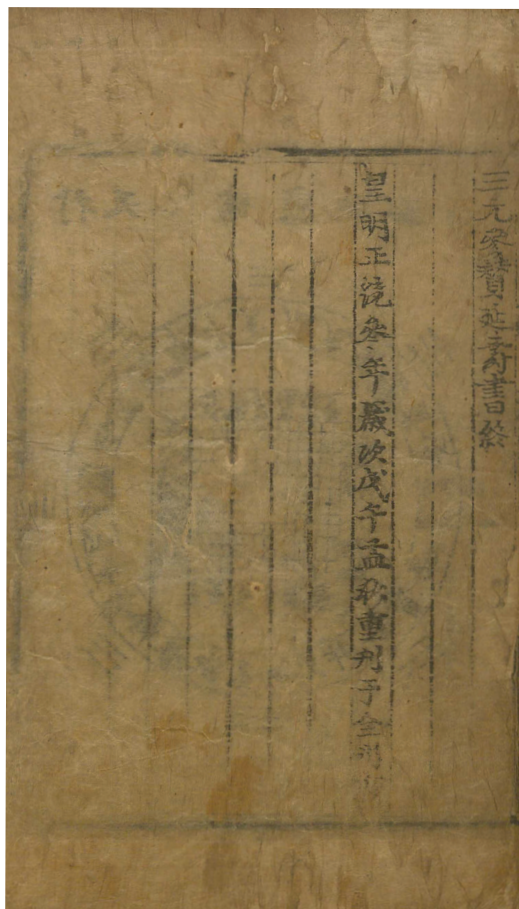 三元叅贊延壽書終
皇明正統叅年歲次戊午孟秋重刋于全州